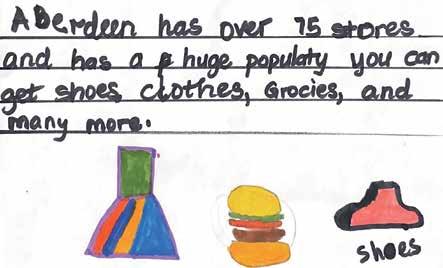 ABerdeen has over 75 stores
and has a huge populaty you can
get shoes, clothes, Grocies, and
many more.
shoes